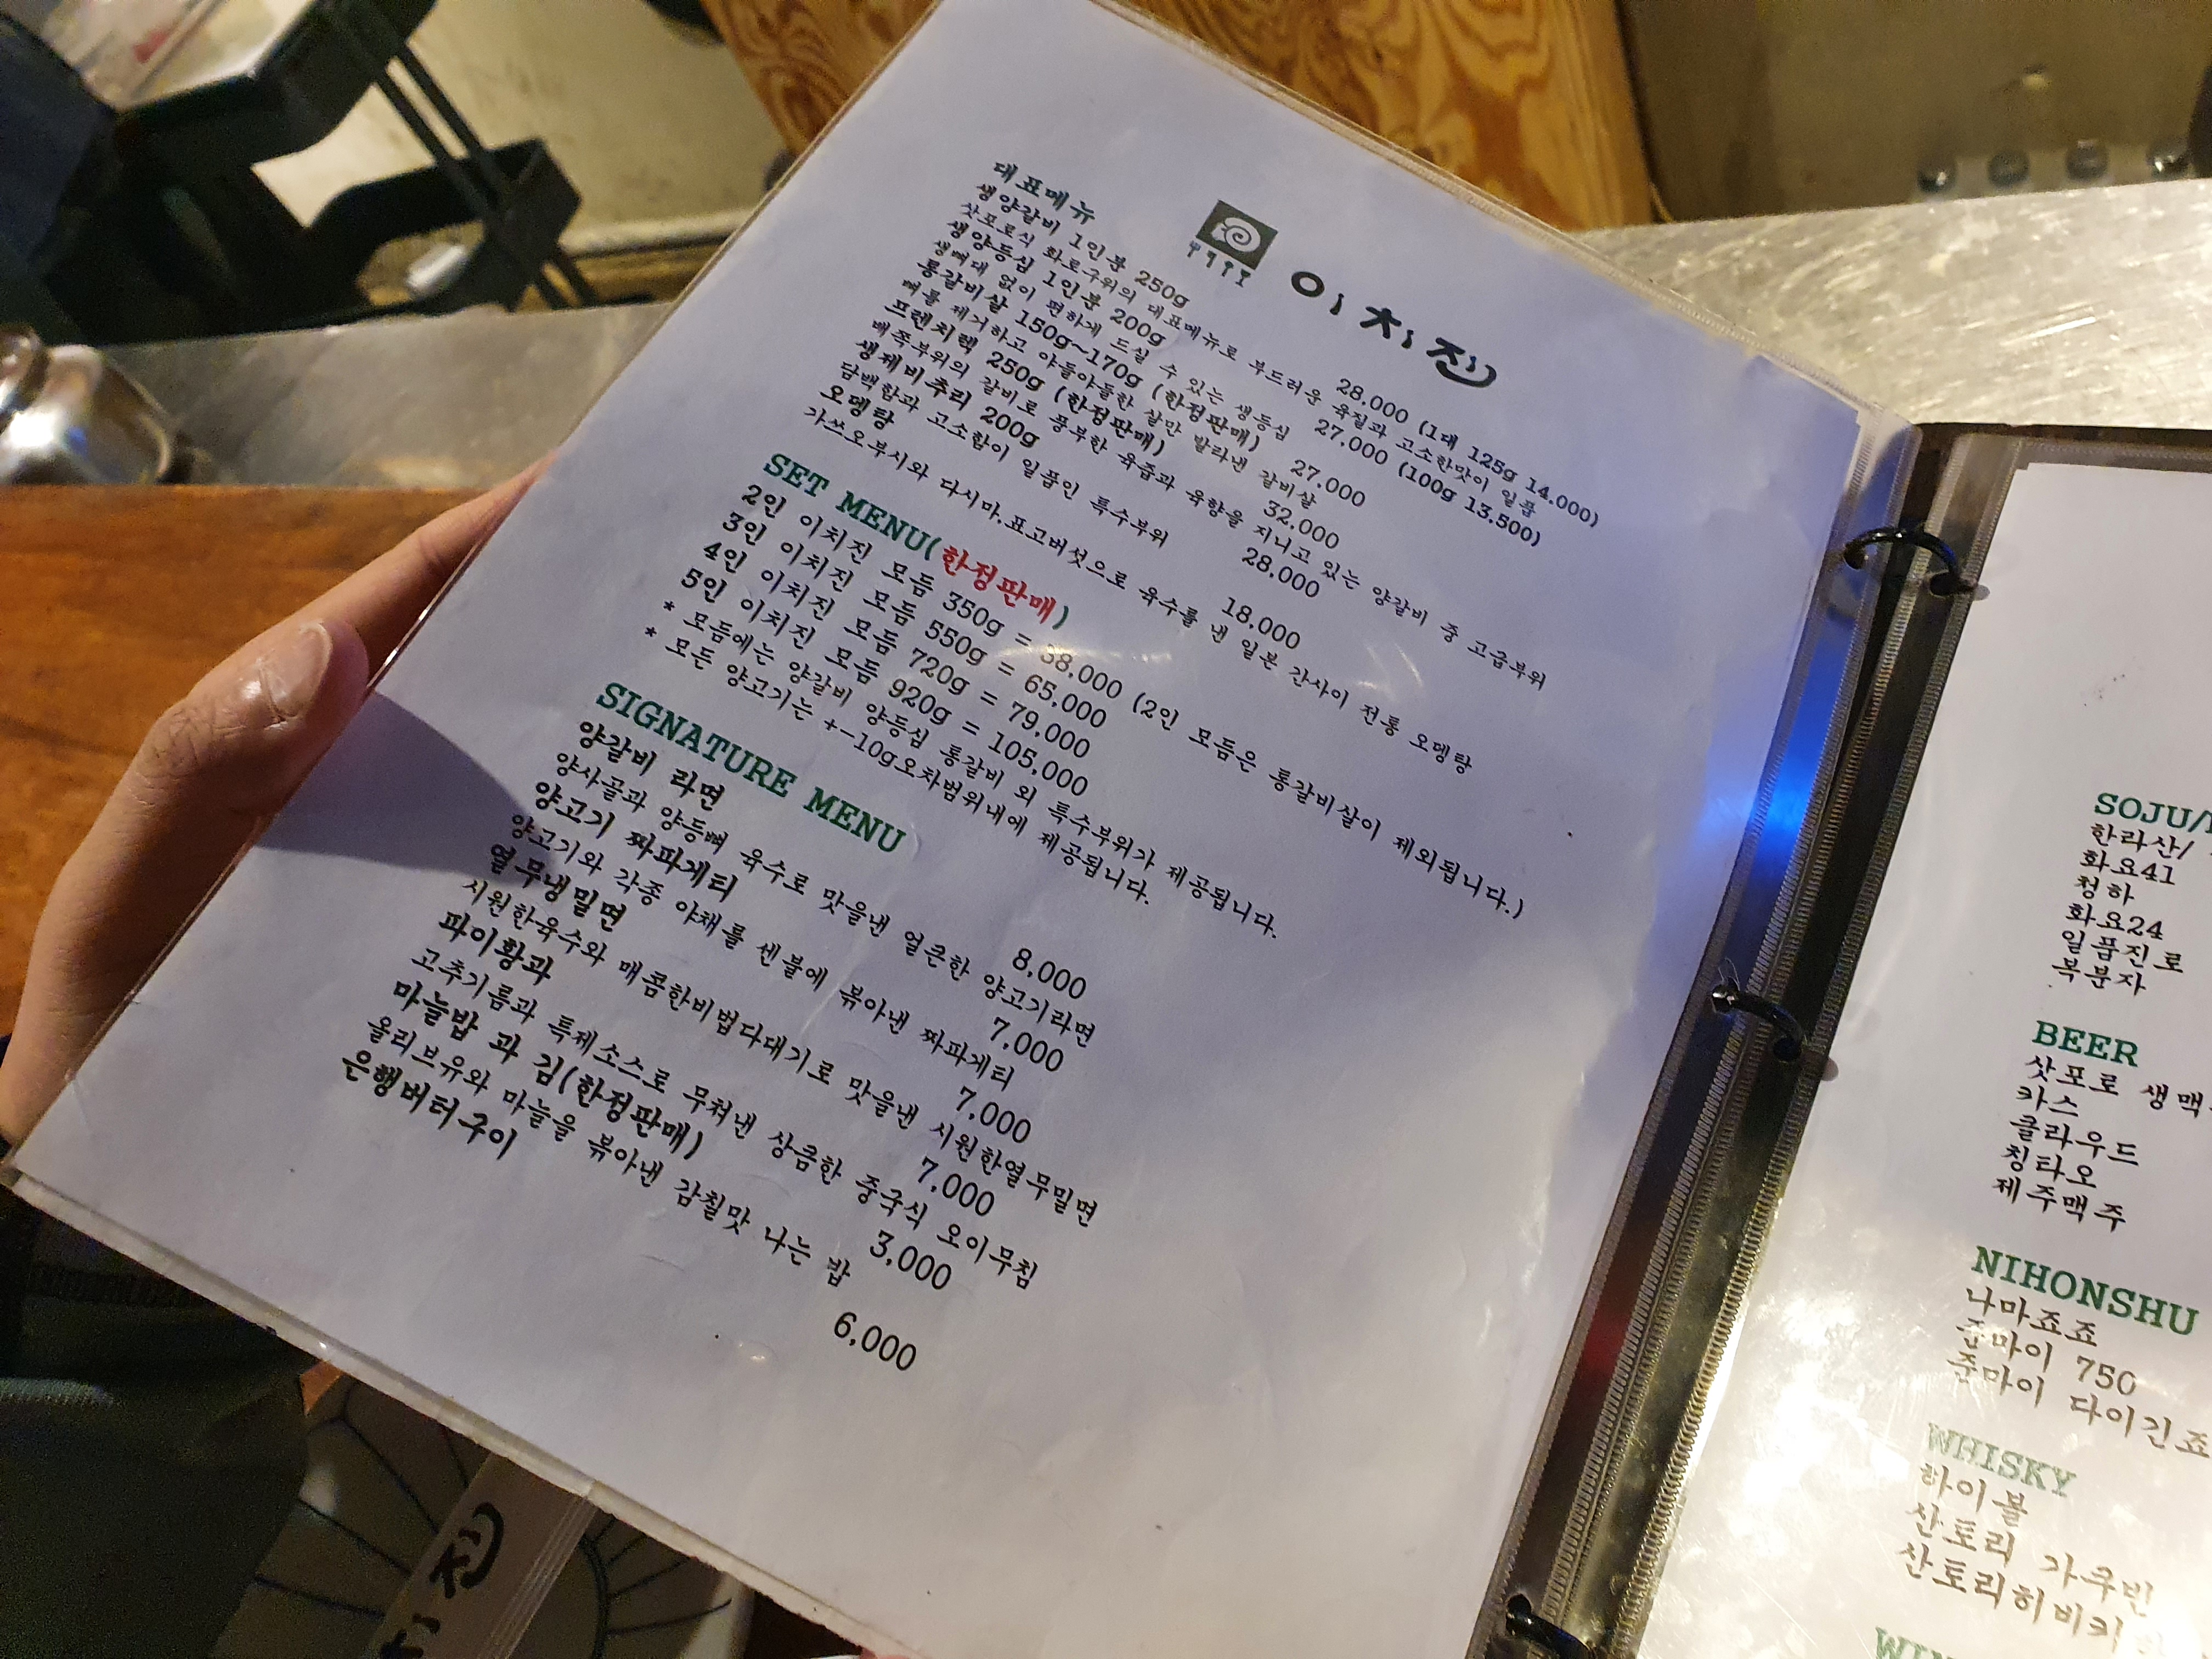 이치진
대표메뉴
생양갈비 1인분 250g 28,000 (1대 125g 14,000)
삿포로식 화로구위의 대표메뉴로 부드러운 육질과 고소한맛이 일품
생양등심 1인분 200g 27,000 (100g 13,500)
생뼈대 없이 편하게 드실 수 있는 생등심
통갈비살 150g~170g (한정판매) 27,000
뼈를 제거하고 야들야들한 살만 발라낸 갈비살
프렌치랙 250g (한정판매) 32,000
배쪽부위의 갈비로 풍부한 육즙과 육향을 지니고 있는 양갈비 중 고급부위
생제비추리 200g 28,000
담백함과 고소함이 일품인 특수부위
오뎅탕 18,000
가쓰오부시와 다시마,표고버섯으로 육수를 낸 일본 간사이 전통 오뎅탕
SET MENU(한정판매)
2인 이치진 모듬 350g = 38,000 (2인 모듬은 통갈비살이 제외됩니다.)
3인 이치진 모듬 550g = 65,000
4인 이치진 모듬 720g = 79,000
5인 이치진 모듬 920g = 105,000
* 모듬에는 양갈비 양등심 통갈비 외 특수부위가 제공됩니다.
* 모든 양고기는 +-10g오차범위내에 제공됩니다.
SIGNATURE MENU
양갈비 라면 8,000
양사골과 양등뼈 육수로 맛을낸 얼큰한 양고기라면
양고기 짜파게티 7,000
양고기와 각종 야채를 센불에 볶아낸 짜파게티
열무냉밀면 7,000
시원한육수와 매콤한비법다대기로 맛을낸 시원한열무밀면
파이황과 7,000
고추기름과 특제소스로 무쳐낸 상큼한 중국식 오이무침
마늘밥 과 김(한정판매) 3,000
올리브유와 마늘을 볶아낸 감칠맛 나는 밥
은행버터구이 6,000
SOJU/
한라산/
화요41
청하
화요24
일품진로
복분자
BEER
삿포로 생맥
카스
클라우드
칭타오
제주맥주
NIHONSHU
나마죠죠
준마이 750
준마이 다이긴죠
WHISKY
하이볼
산토리 가쿠빈
산토리히비키
치진